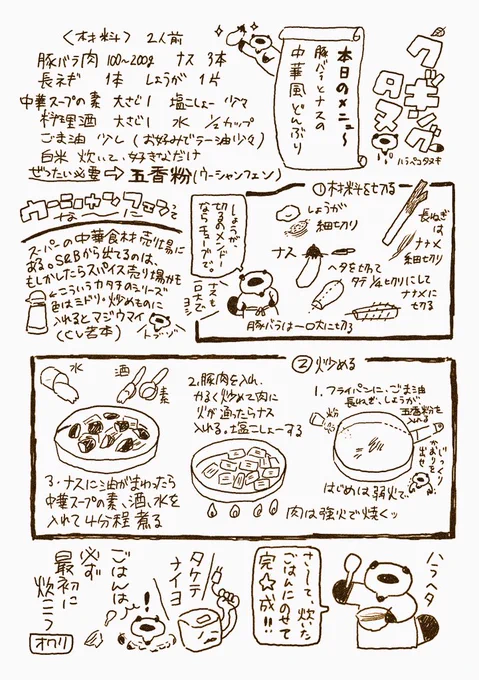 クッキング
タヌ
ハラペコタヌキ
本日のメニュ〜
豚バラとナスの
中華風どんぶり
〈材料〉 2人前
豚バラ肉 100〜200g ナス 3本
長ネギ 1本 しょうが 1片
中華スープの素 大さじ1 塩こしょー 少々
料理酒 大さじ1 水 1/2カップ
ごま油 少し (お好みでラー油少々)
白米 炊いて、好きなだけ
ぜったい必要→五香粉(ウーシャンフェン)
ウーシャンフェンって
な〜に
スーパーの中華食材売り場に
ある。S&Bから出てるのは、
もしかしたらスパイス売り場かも
←こういうカタチのシリーズ
色はミドリ。炒めものに
入れるとマジウマイ
①材料を切る
しょうが
細切り
長ねぎは
ナナメ
細切り
ナス→
ヘタを切って
タテ1/2切りにして
ナナメに
切る
豚バラは一口大に切る
しょうが
切るのメンドー
ならチューブで。
ナスも
一口大で
ヨシ
②炒める
1.フライパンに、ごま油
長ねぎ、しょうが、
五香粉を
入れる
じっくり
かおりを
出せ
はじめは弱火で
肉は強火で焼くッ
2.豚肉を入れ、
かるく炒めて肉に
火が通ったらナス
入れる。塩こしょーする
水
酒
素
3.ナスに油がまわったら
中華スープの素、酒、水を
入れて4分程煮る
ハラヘタ
そして、炊いた
ごはんにのせて
完☆成!!
タケテ
ナイヨ
ごはんは
必ず
最初に
炊こう
オワリ